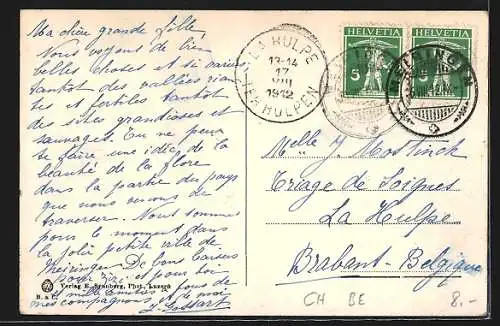 Ma chère grande fille,
Nous voyons de bien
belles choses et si variées
tantôt des vallées riantes
et fertiles tantôt
des sites grandioses et
sauvages. Tu ne peux
te faire une idée de la
beauté de la flore
dans la partie du pays
que nous venons de
traverser. Nous sommes
pour le moment dans
la jolie petite ville de
Meiringen. De bons baisers
pour et pour toi
mille amitiés de
mes compagnons et de moi
Verlag E. Synnberg, Phot., Luzern
LA HULPE
13-14
17
VIII
1912
TER HULPEN
HELVETIA
5
HELVETIA
5
MEIRINGEN
Melle J. Mostinck
Triage de Soignes
La Hulpe
Brabant-Belgique
CH BE 8.-